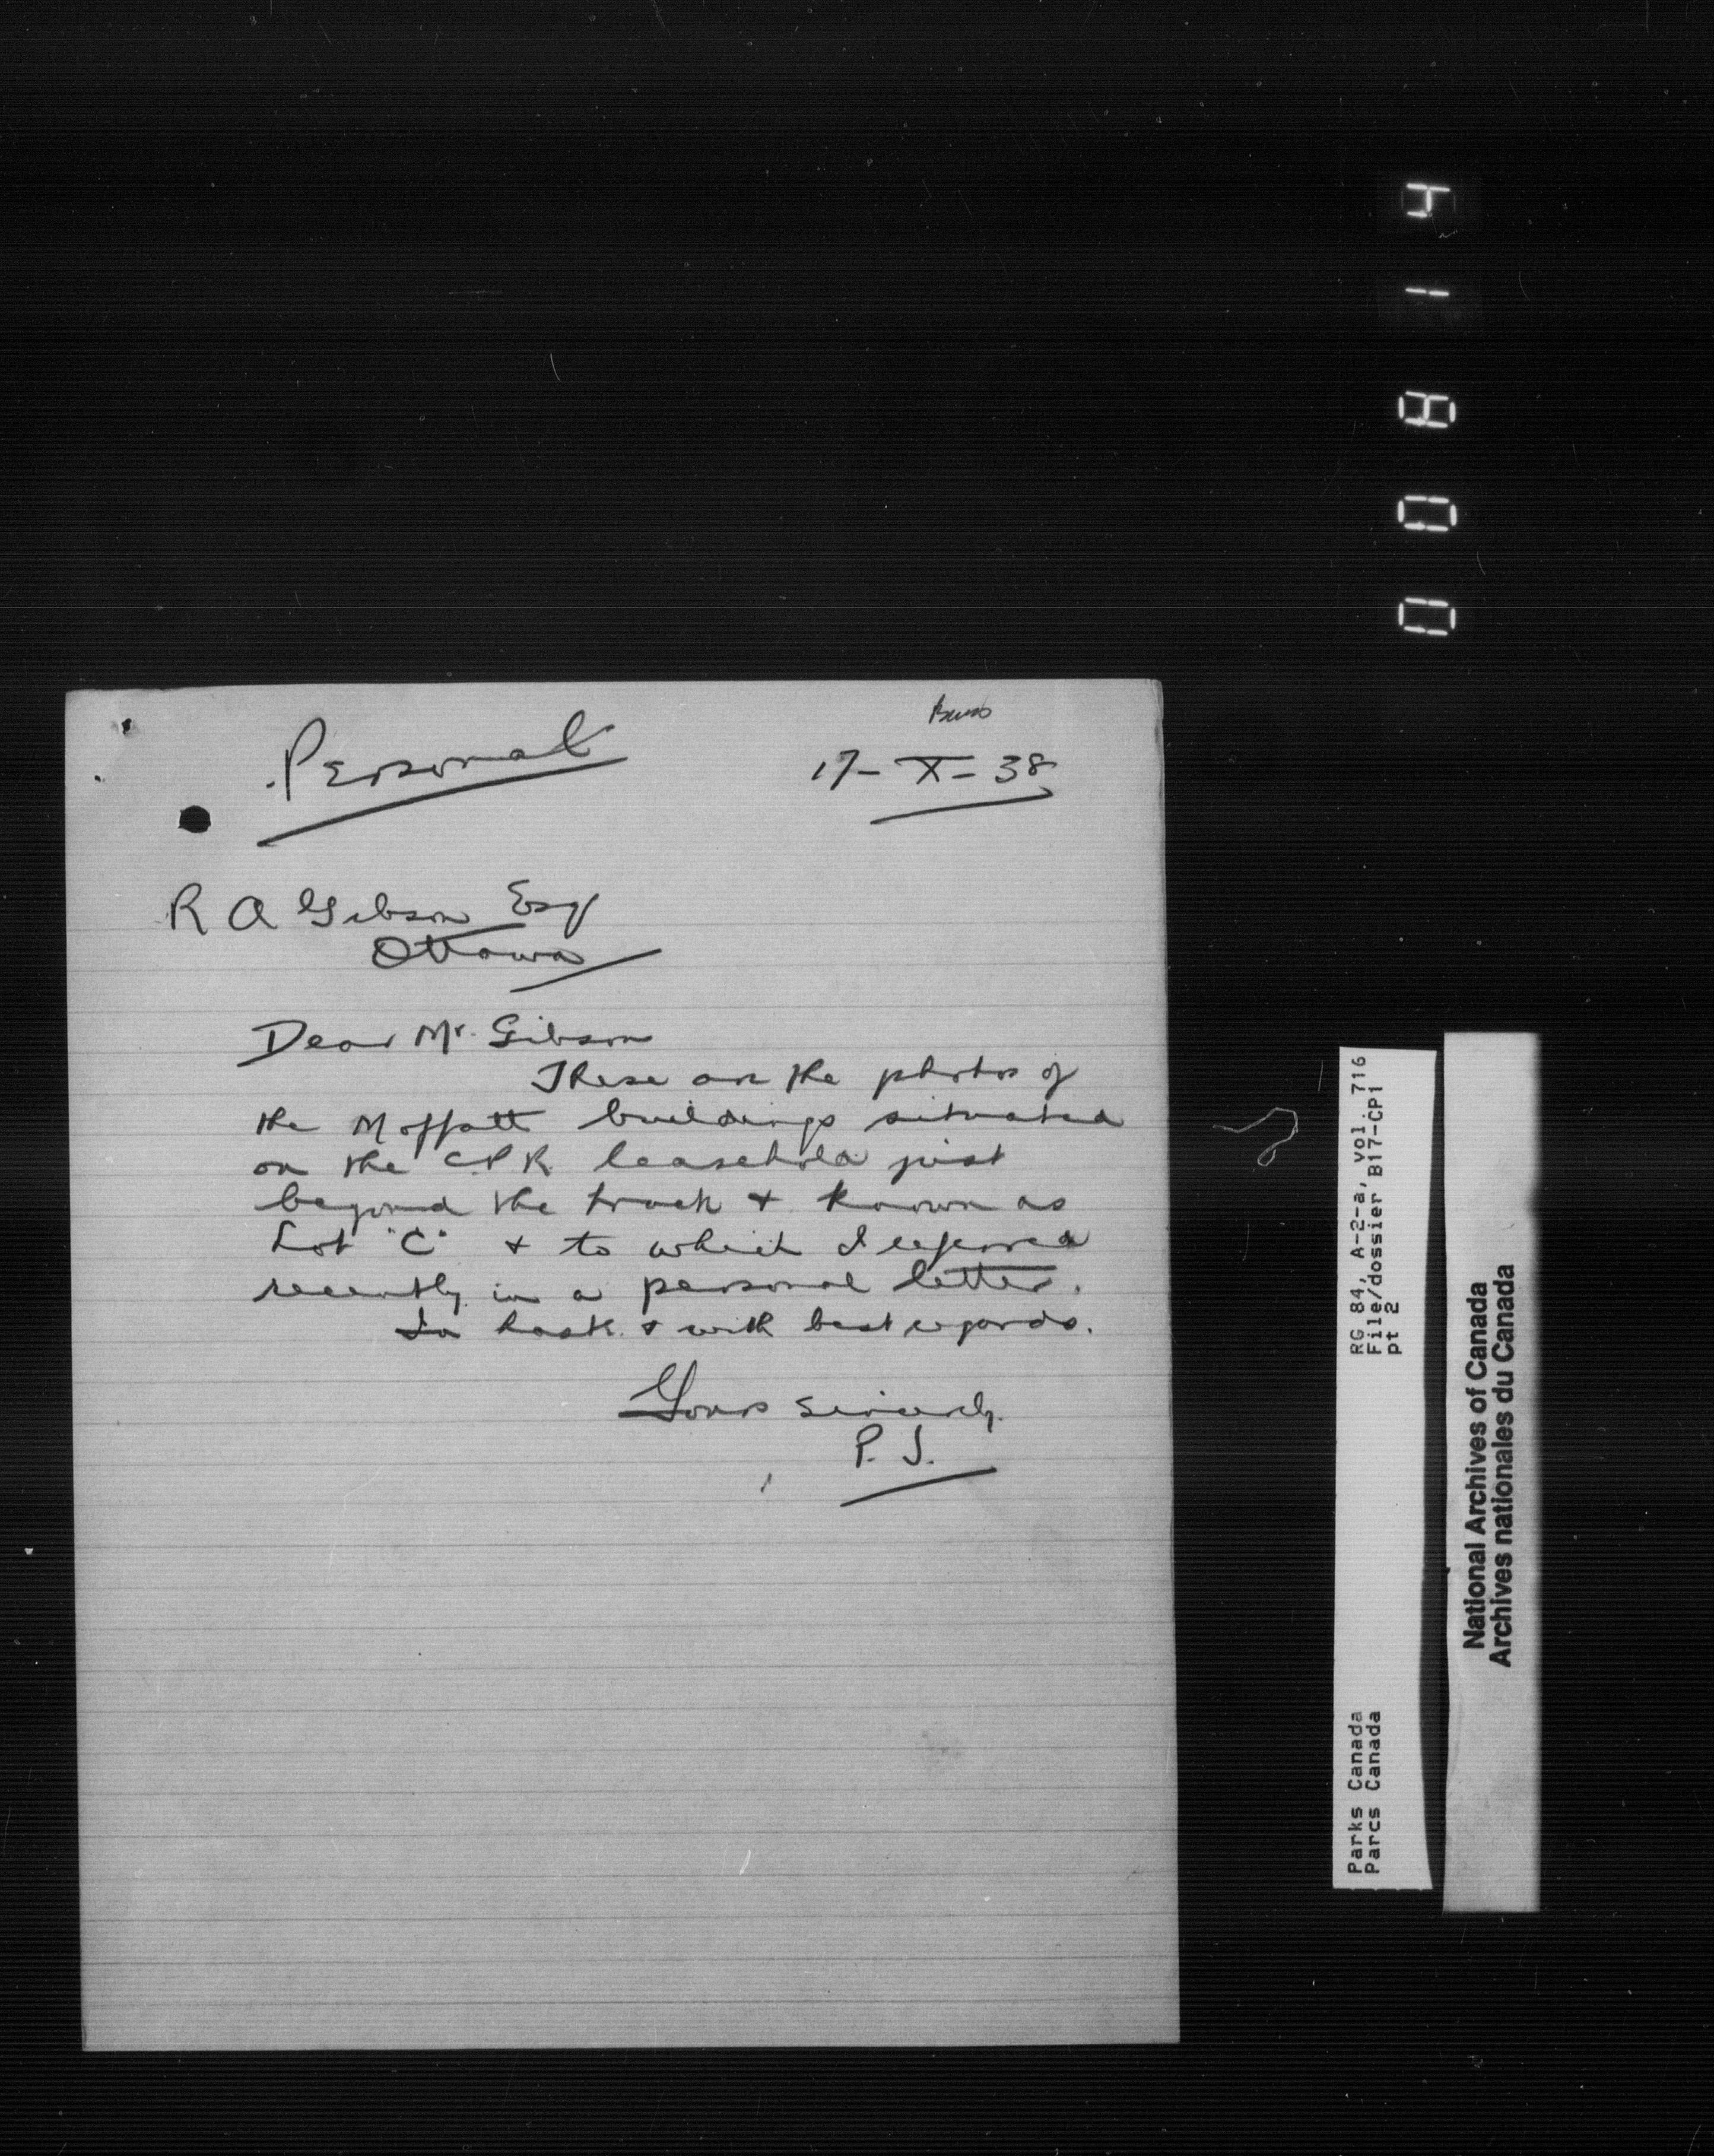 Personal
17-X-38
R A Gibson Esq
Ottawa
Dear Mr. Gibson
These are the photos of
the Moffatt buildings situated
on the C.P.R. leasehold just
beyond the track & known as
Lot "C" & to which I referred
recently in a personal letter.
In haste & with best regards.
Yours sincerely.
P. J.
00814
RG 84, A-2-a, vol. 716
File/dossier B17-CP1
pt 2
Parks Canada
Parcs Canada
National Archives of Canada
Archives nationales du Canada